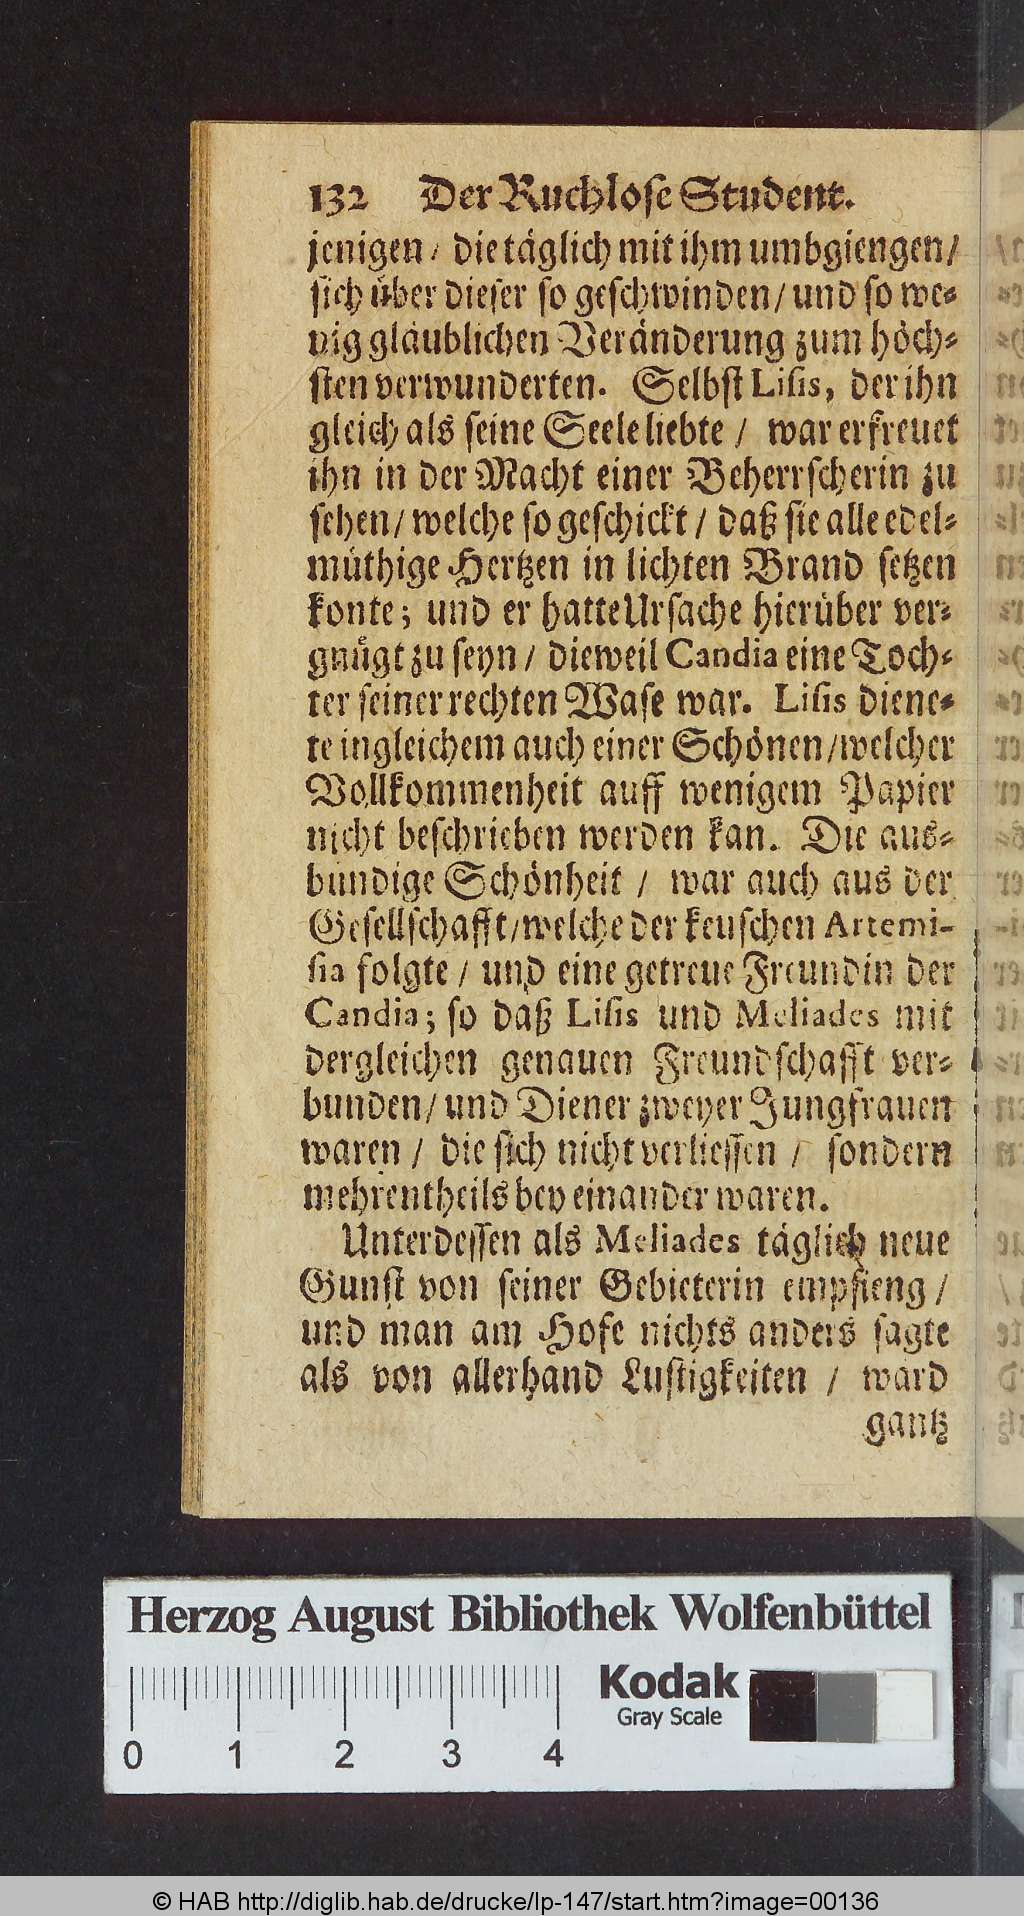 132 Der Ruchlose Student.
jenigen / die täglich mit ihm umbgiengen /
sich über dieser so geschwinden / und so we-
nig gläublichen Veränderung zum höch-
sten verwunderten. Selbst Lisis, der ihn
gleich als seine Seele liebte / war erfreuet
ihn in der Macht einer Beherrscherin zu
sehen / welche so geschickt / daß sie alle edel-
müthige Hertzen in lichten Brand setzen
konte; und er hatte Ursache hierüber ver-
gnügt zu seyn / dieweil Candia eine Toch-
ter seiner rechten Wase war. Lisis diene-
te ingleichem auch einer Schönen / welcher
Vollkommenheit auff wenigem Papier
nicht beschrieben werden kan. Die aus-
bündige Schönheit / war auch aus der
Gesellschafft / welche der keuschen Artemi-
sia folgte / und eine getreue Freundin der
Candia; so daß Lisis und Meliades mit
dergleichen genauen Freundschafft ver-
bunden / und Diener zweyer Jungfrauen
waren / die sich nicht verliessen / sondern
mehrentheils bey einander waren.
Unterdessen als Meliades täglich neue
Gunst von seiner Gebieterin empfieng /
und man am Hofe nichts anders sagte
als von allerhand Lustigkeiten / ward
gantz
Herzog August Bibliothek Wolfenbüttel
Kodak
Gray Scale
0 1 2 3 4
© HAB http://diglib.hab.de/drucke/lp-147/start.htm?image=00136